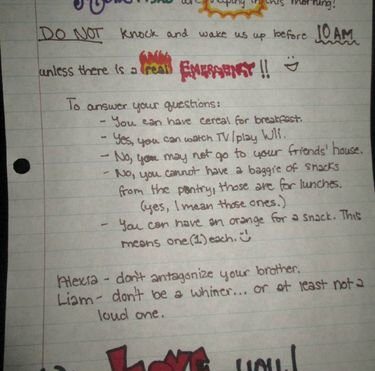 Mom are sleeping in this morning!
DO NOT knock and wake us up before 10 AM
unless there is a real EMERGENCY!!
To answer your questions:
- You can have cereal for breakfast.
- Yes, you can watch TV/play Wii.
- No, you may not go to your friends' house.
- No, you cannot have a baggie of snacks
from the pantry, those are for lunches.
(yes, I mean those ones.)
- You can have an orange for a snack. This
means one (1) each.
Alexia - don't antagonize your brother.
Liam - don't be a whiner... or at least not a
loud one.
LOVE you!